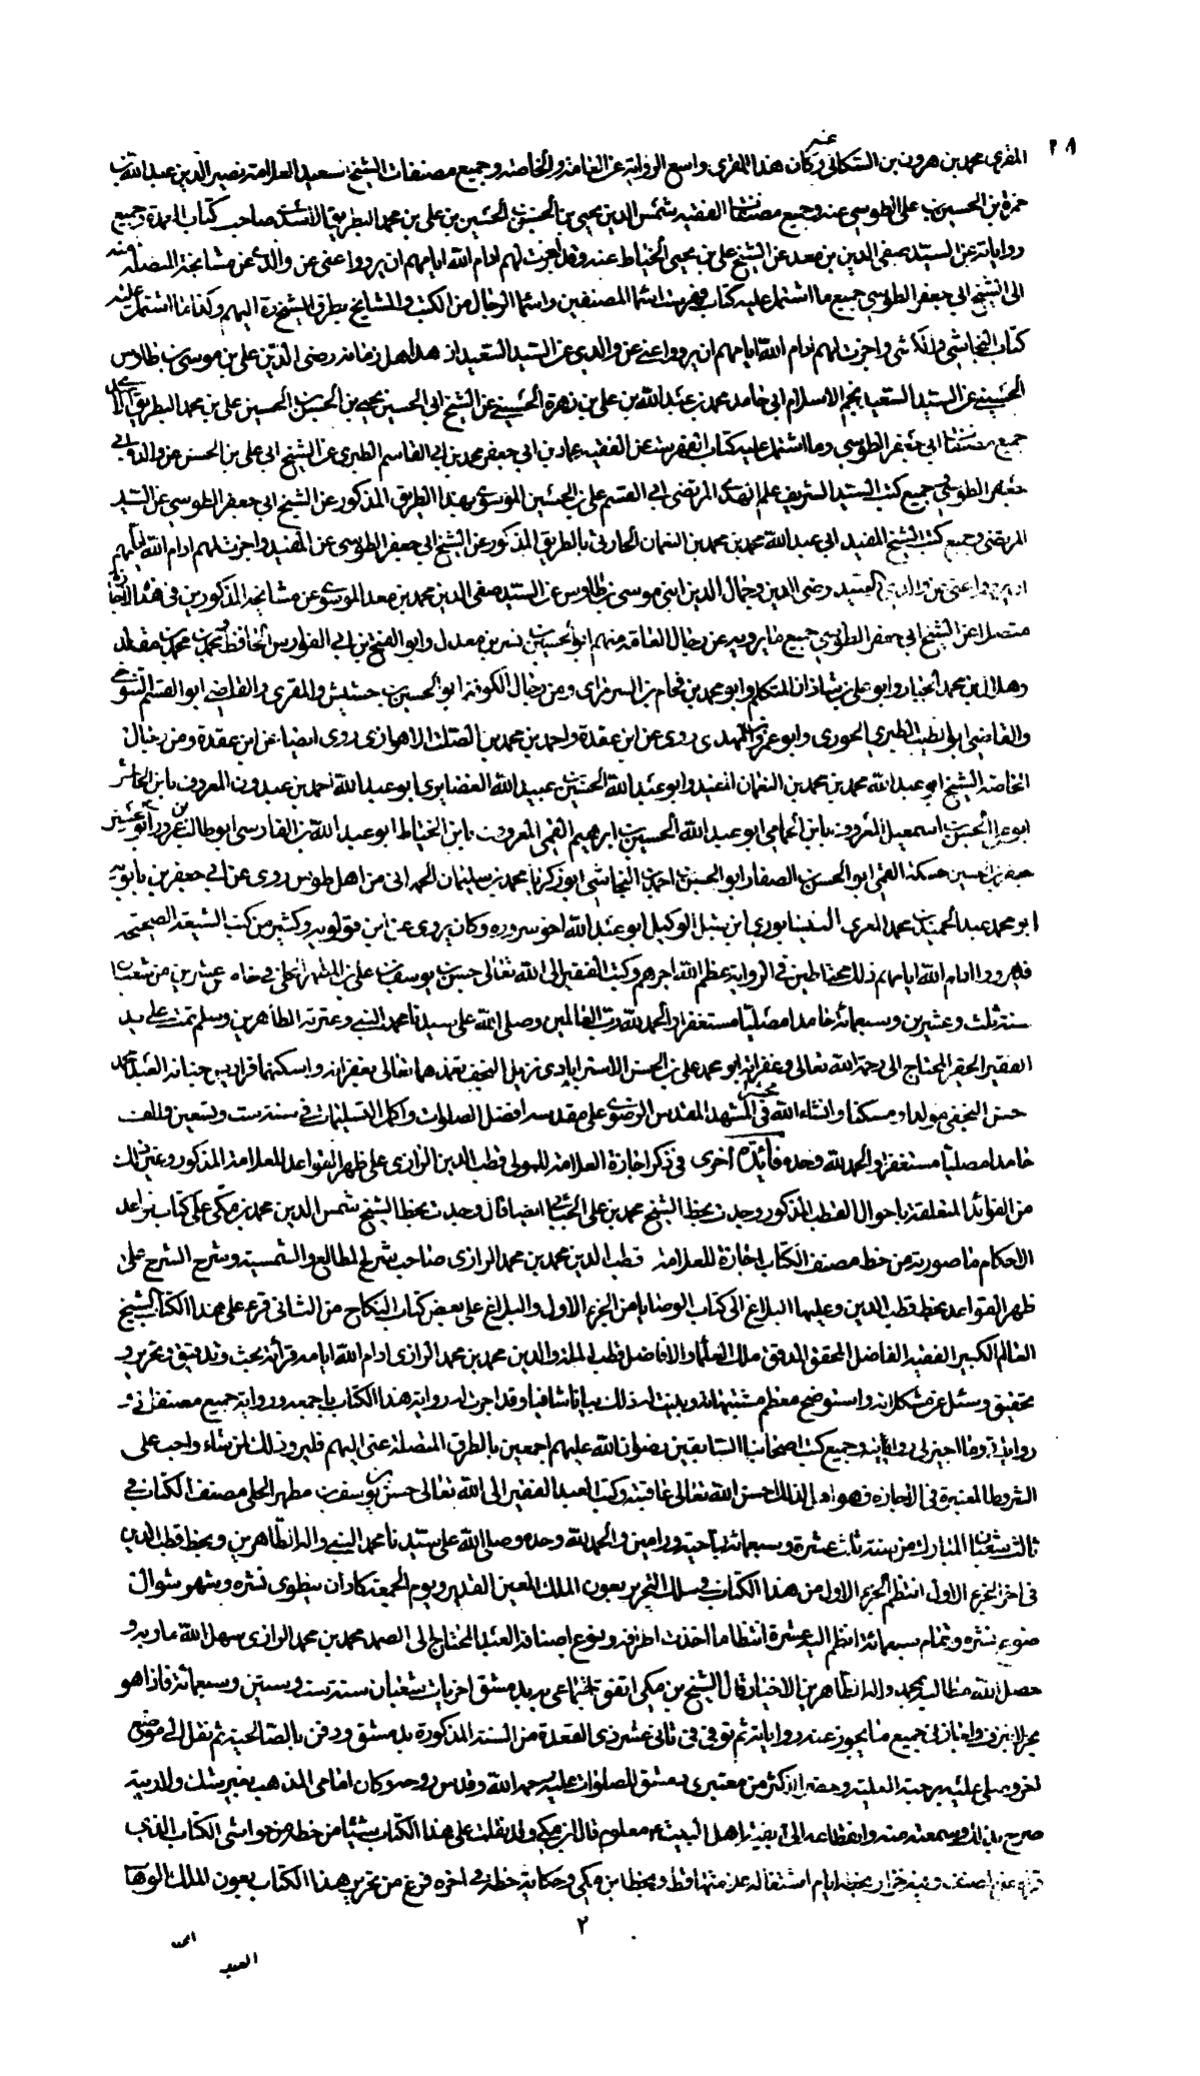 ٢٨
المقري محمد بن هرون بن السكاكي عنه وكان هذا المقري واسع الرواية عن العامة والخاصة وجميع مصنفات الشيخ السعيد العلامة نصير الدين عبد الله بن
حمزة بن الحسين بن علي الطوسي عنه وجميع مصنفات الفقيه شمس الدين يحيى بن الحسن بن الحسين بن علي بن محمد البطريق الاسدي صاحب كتاب العمدة وجميع
رواياته عن السيد صفي الدين بن معد عن الشيخ علي بن يحيى الخياط عنه وقد اجزت لهم ادام الله ايامهم ان يرووا عني عن والدي عن مشايخه المتصلة منه
الى الشيخ ابي جعفر الطوسي جميع ما اشتمل عليه كتاب فهرست اسماء المصنفين واسماء الرجال من الكتب والمشايخ بطرق الشيخ ره اليهم وكذا ما اشتمل عليه
كتاب النجاشي والكشي واجزت لهم ادام الله ايامهم ان يرووا عني عن والدي عن السيد السعيد ازهد اهل زمانه رضي الدين علي بن موسى بن طاوس
الحسيني عن السيد السعيد نجم الاسلام ابي حامد محمد بن عبد الله بن علي بن زهرة الحسيني عن الشيخ ابي الحسين يحيى بن الحسن بن الحسين علي بن محمد البطريق الاسدي
جميع مصنفات ابي جعفر الطوسي وما اشتمل عليه كتاب الفهرست عن الفقيه عماد بن ابي جعفر محمد بن ابي القاسم الطبري عن الشيخ ابي علي بن الحسن عن والده ابي
جعفر الطوسي وجميع كتب السيد الشريف علم الهدى المرتضى ابي القسم علي بن الحسين الموسوي بهذا الطريق المذكور عن الشيخ ابي جعفر الطوسي عن السيد
المرتضى وجميع كتب الشيخ المفيد ابي عبد الله محمد بن محمد بن النعمان الحارثي بالطريق المذكور عن الشيخ ابي جعفر الطوسي عن المفيد واجزت لهم ادام الله ايامهم
ان يرووا عني عن والدي السعيد رضي الدين وجمال الدين ابني موسى بن طاوس عن السيد صفي الدين محمد بن معد الموسوي عن مشايخه المذكورين في هذه الاجازة
متصلا عن الشيخ ابي جعفر الطوسي جميع ما يرويه عن رجال العامة منهم ابو الحسين بن بشر بن معدل وابو الفتح بن ابي الفوارس الحافظ ومحمد بن محمد بن مخلد
وهلال بن محمد الحفار وابو علي بن شاذان المتكلم وابو محمد بن فحام من السرمراي ومن رجال الكوفة ابو الحسين بن خشيش والمقري والقاضي ابو القسم التنوخي
والقاضي ابو الطيب الطبري الحوري وابو عمرو بن المهدي روى عن ابن عقدة واحمد بن محمد بن الصلت الاهوازي روى ايضا عن ابن عقدة ومن رجال
الخاصة الشيخ ابو عبد الله محمد بن محمد بن النعمان المفيد وابو عبد الله الحسين بن عبيد الله الغضايري ابو عبد الله احمد بن عبدون المعروف بابن الحاشر
ابو علي الحسن بن اسمعيل المعروف بابن الحمامي ابو عبد الله الحسين بن ابراهيم القمي المعروف بابن الخياط ابو عبد الله بن الفارسي ابو طالب بن غرور ابو الحسين
جعفر بن الحسين حسكة القمي ابو الحسين الصفار ابو الحسين بن احمد بن النجاشي ابو زكريا محمد بن سليمان الحمداني من اهل طوس روى عن ابي جعفر بن بابويه
ابو محمد عبد الحميد بن محمد المقري النيسابوري ابن شبل الوكيل ابو عبد الله اخو سروره وكان يروي عن ابن قولويه وكثير من كتب الشيعة الصحيحة
فليرووا ادام الله ايامهم ذلك محتاطين في الرواية عظم الله اجرهم وكتب الفقير الى الله تعالى حسن بن يوسف بن علي بن المطهر الحلي في خامس عشرين من شعبان
سنة ثلث وعشرين وسبعمائة حامدا مصليا مستغفرا والحمد لله رب العالمين وصلى الله على سيدنا محمد النبي وعترته الطاهرين وسلم تمت على يد
الفقير الحقير المحتاج الى رحمة الله تعالى وغفرانه ابو محمد علي بن الحسن الاسترابادي نزيل النجف تغمدهما تعالى بغفرانه واسكنهما فراديس جنانه العبد محمد
حسن النجفي مولدا ومسكنا وانشاء الله محشرا في المشهد المقدس الرضوي على مقدسه افضل الصلوات واكمل التسليمات في سنة ست وتسعين والف
حامدا مصليا مستغفرا والحمد لله وحده فائدة اخرى في ذكر اجازة العلامة للمولى قطب الدين الرازي على ظهر القواعد للعلامة المذكور وغير ذلك
من الفوائد المتعلقة باحوال القطب المذكور وجدت بخط الشيخ محمد بن علي الجباعي ايضا قال وجدت بخط الشيخ شمس الدين محمد بن مكي على كتاب قواعد
الاحكام ما صورته من خط مصنف الكتاب اجازة للعلامة قطب الدين محمد بن محمد الرازي صاحب شرح المطالع والشمسية وشرح الشرح على
ظهر القواعد بخط قطب الدين وعليها البلاغ الى كتاب الوصايا من الجزء الاول والبلاغ على بعض كتاب النكاح من الثاني قرء على هذا الكتاب الشيخ
العالم الكبير الفقيه الفاضل المحقق المدقق ملك العلماء والافاضل قطب الملة والدين محمد بن محمد الرازي ادام الله ايامه قرائة بحث وتدقيق وتحرير و
تحقيق وسئل عن مشكلاته واستوضح معظم مشتبهاته وبينت له ذلك بيانا شافيا وقد اجزت له رواية هذا الكتاب باجمعه ورواية جميع مصنفاتي و
رواياتي وما اجيز لي روايته وجميع كتب اصحابنا السابقين رضوان الله عليهم اجمعين بالطرق المتصلة عني اليهم فليرو ذلك لمن شاء واحب على
الشروط المعتبرة في الاجازة فهو اهل لذلك احسن الله تعالى عاقبته وكتب العبد الفقير الى الله تعالى حسن بن يوسف بن مطهر الحلي مصنف الكتاب في
ثالث شعبان المبارك من سنة ثلث عشرة وسبعمائة بناحية ورامين والحمد لله وحده وصلى الله على سيدنا محمد النبي واله الطاهرين وبخط قطب الدين
في اخر الجزء الاول انتظم الجزء الاول من هذا الكتاب في سلك التحرير بعون الملك المعين القدير ويوم الجمعة كاد ان ينطوي نشره وشهر شوال
ضوع نشره وتمام سبعمائة انظم اليه عشرة انتظاما اخذت اطرافه ونوع اصنافه العبد المحتاج الى الصمد محمد بن محمد الرازي سهل الله ماربه و
حصل الله مطالبه بمحمد واله الطاهرين الاخيار قال الشيخ بن مكي اتفق اجتماعي به بدمشق اخريات شعبان سنة ست وستين وسبعمائة فاذا هو
بحر لا ينزف واجاز لي جميع ما يجوز عنه روايته ثم توفي في ثاني عشر ذي القعدة من السنة المذكورة بدمشق ودفن بالصالحية ثم نقل الى موضع
اخر وصلي عليه برحبة القلعة وحضر الاكثر من معتبري دمشق للصلوات عليه رحمه الله وقدس روحه وكان امامي المذهب بغير شك ولا ريبة
صرح بذلك وسمعته منه وانقطاعه الى بقية اهل البيت ع معلوم قال ابن مكي وقد نقلت على هذا الكتاب شيئا من خطه من حواشي الكتاب الذي
قراه على المصنف وفيه حزاز بخطه ايام اشتغاله عليه منها فقط وبخط ابن مكي وحكاية خطه في اخره فرغ من تحرير هذا الكتاب بعون الملك الوهاب
٢
العبد